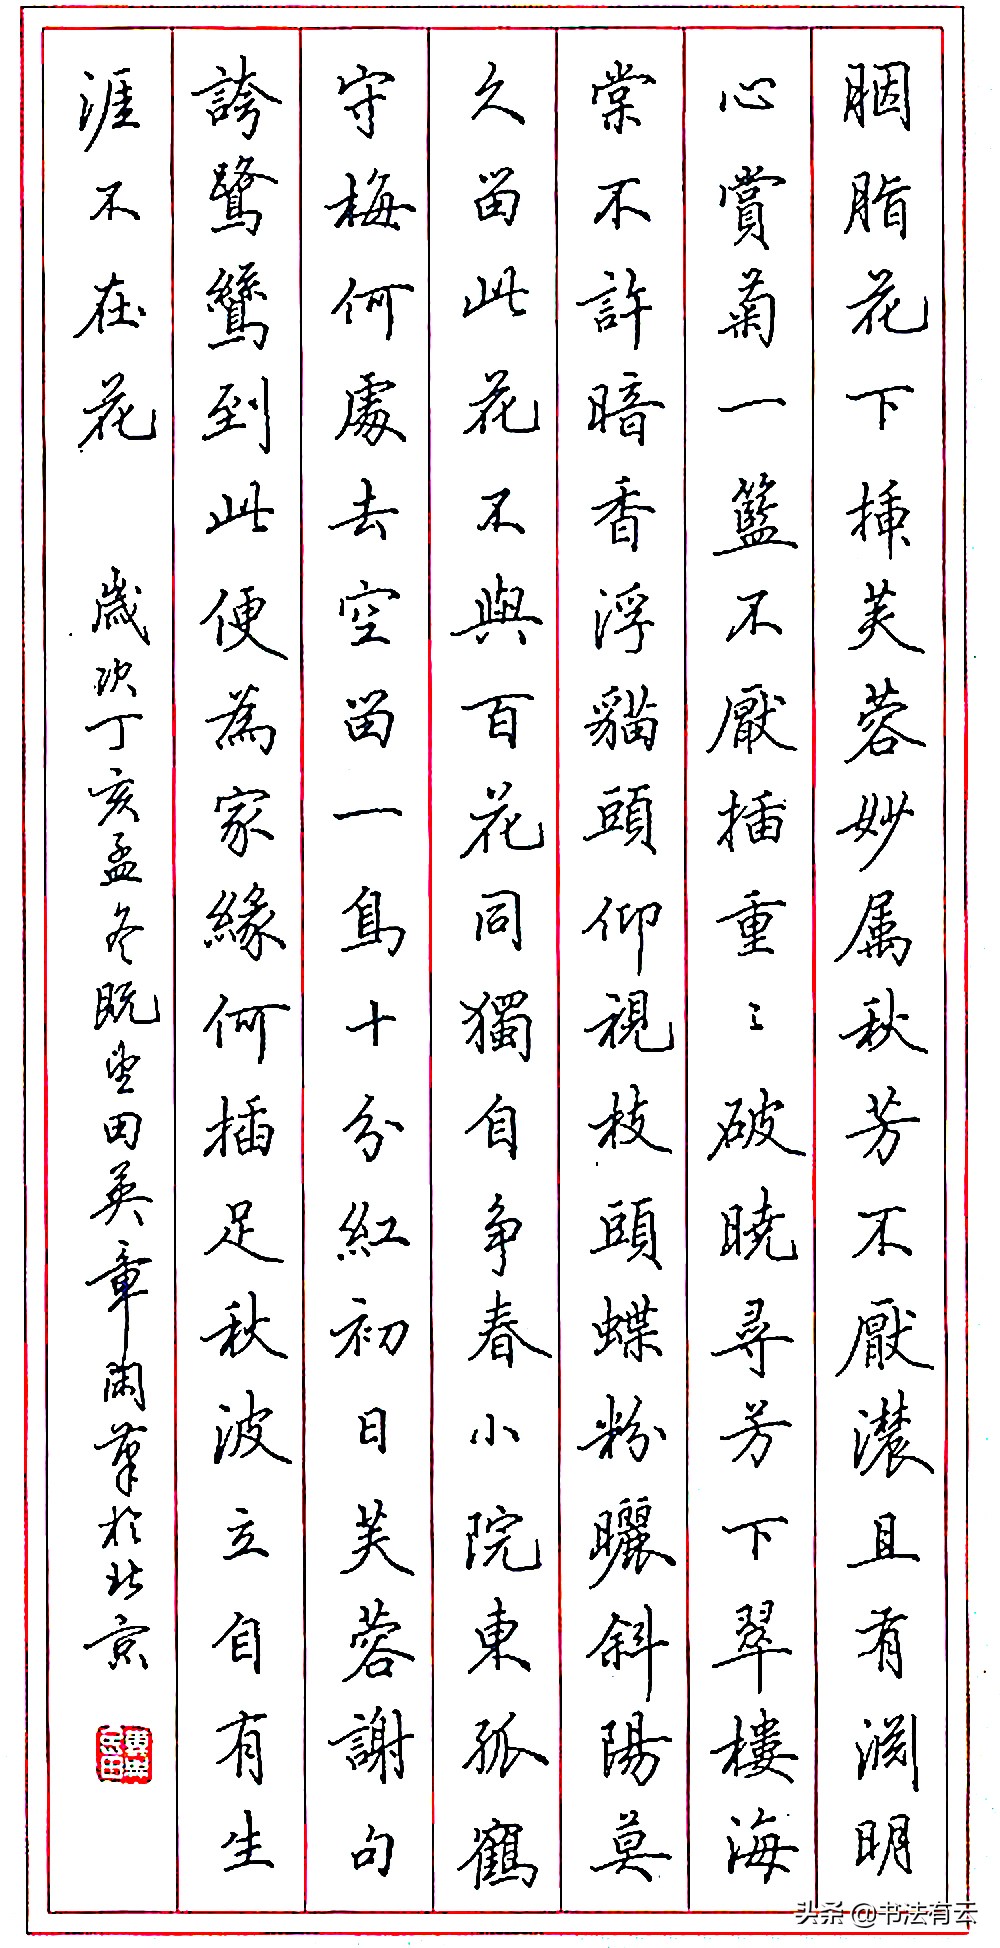 胭脂花下插芙蓉妙属秋芳不厭濃且有淵明
心賞菊一籃不厭插重〻破曉尋芳下翠樓海
棠不許暗香浮貓頭仰視枝頭蝶粉曬斜陽莫
久留此花不與百花同獨自争春小院東孤鶴
守梅何處去空留一鳥十分紅初日芙蓉謝句
誇鷺鷥到此便為家緣何插足秋波立自有生
涯不在花
歲次丁亥孟冬既望田英章閑筆於北京
头条 @书法有云